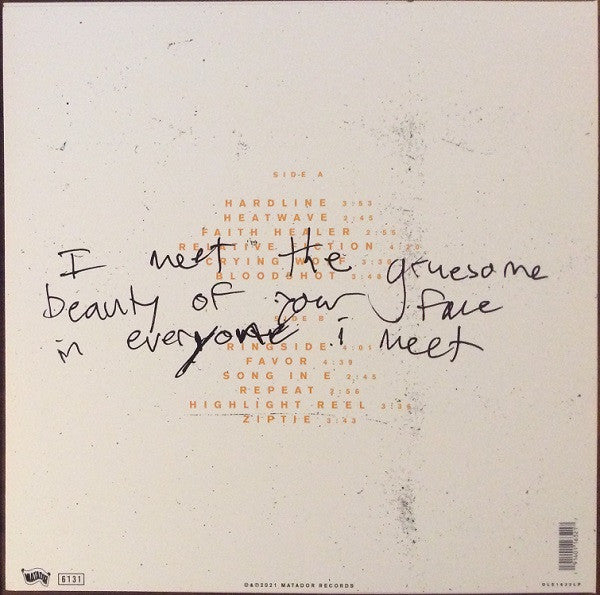 SIDE A
HARDLINE 3:53
HEATWAVE 2:45
FAITH HEALER 2:55
RELATIVE FICTION 4:20
CRYING WOLF
BLOODSHOT
I meet the gruesome
beauty of your face
in everyone i meet
SIDE B
RINGSIDE 4:01
FAVOR 4:39
SONG IN E 2:45
REPEAT 2:56
HIGHLIGHT REEL
ZIPTIE 3:43
MATADOR
6131
2021 MATADOR RECORDS